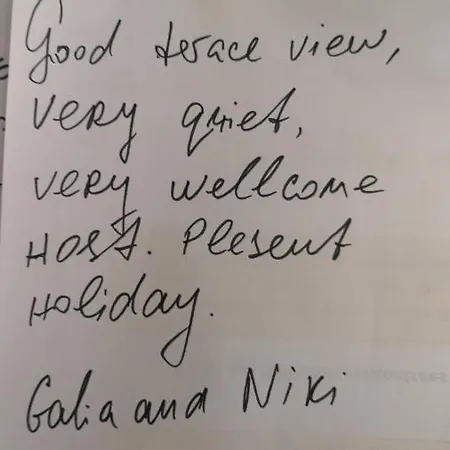 Good terace view,
very quiet,
very wellcome
Host. Plesent
Holiday.
Galia and Niki